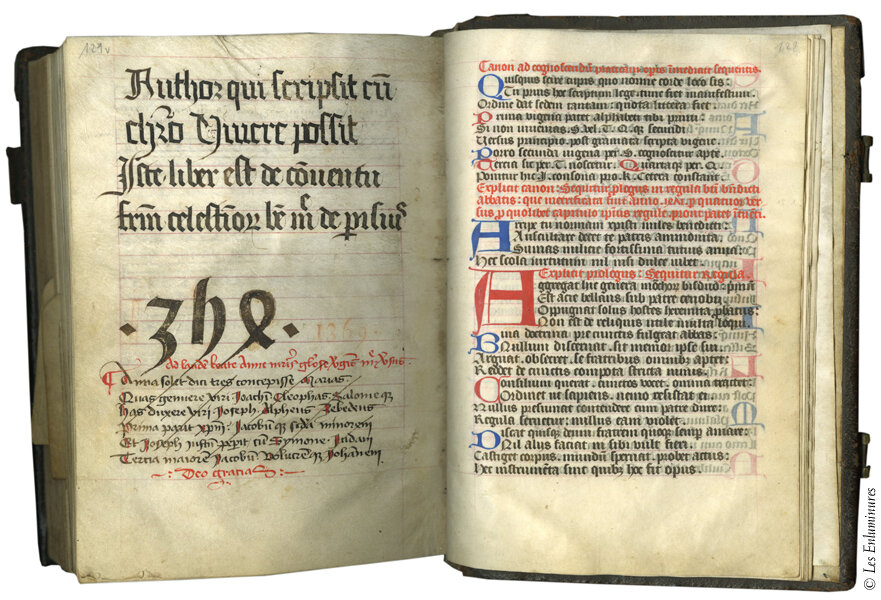 129v
Author qui scripsit cu͞
chr͞o Vivere possit
Iste liber est de co͞ventu
fr͞m celestinoꝝ b͞e m͞r de parisiusꝰ
1369
Ad laudem beate Anne
Anna solet dici tres concepisse Marias
Quas genuere viri Ioachi͞ Cleophas Salomeqꝫ
Has duxere viri Ioseph Alpheus Zebedeus
Prima parit xp͞m: Iacobu͞qꝫ secu͞da minorem
Et Ioseph iustu͞ pepit cu͞ Symone: Iudam
Tercia maiorem Iacobu͞ Volucre͞qꝫ Iohanem
Deo gracias
128
Canon ad cognoscendu͞ practica͞ opis inmediate sequentis.
Quisquis scire cupis quo nomine code loco sis:
Tu prius hec scriptum lege tunc fiet manifestum
Ordine dat sedem tantam: quota littera fiet.
Prima vigena patet alphabeti tibi primi:
Si non invenias. S. vel. T. Q. qꝫ secundi
Versus principio. post gminata scripta vigene.
Porro secundi vigena per S. cognoscetur apte.
Tercia sic per. T. noscetur. Quartaqꝫ per Q.
Ponitur hic I. consona pro. K. Cetera constant
Explicit canon: Sequitur p͞logus in regula bt͞i bn͞dicti
abbatis: que metrificata fuit anno. p quatuor ver
sus p quolibet capitulo ipsius regule. prout patet intue͞ti.
Aripe tu normam xpisti miles benedicti:
Auscultare decet te patris ammonita.
Sumas milicie fortissima tutius arma:
Hec scola virtutum nil nisi dulce iubet.
Explicit prologus: Sequitur Regula.
Aggregat huc genera mo͞choꝝ bisduo: primu͞
Est acie bellans sub patre cenobu͞
Oppugnat solus hostes heremita probatus:
Non est de reliquis utile multa loqui
Nullum discernat. sit memor ipse sui
Arguat. obsecret. se fratribus omnibꝫ aptet:
Reddet de cunctis compota stricta nimis.
Consilium querat. cunctos vocet. omnia tractet:
Ordinet ut sapiens. nemo resistat ei
Nullus presumat contendere cum patre dure:
Regula sectetur: nullus eam violet.
Discat quisqꝫ deum fratrem quoqꝫ semper amare:
Nil alus faciat ni sibi vult fieri.
Castiget corpus. mundum spernat. probet actus:
Hec instrume͞ta sunt quibꝫ hec fit opus
© Les Enluminures